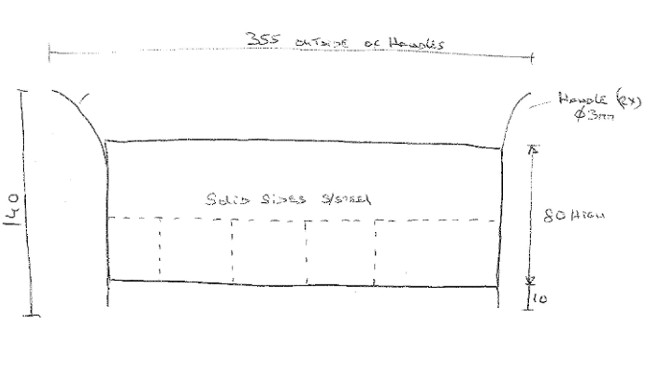 355 OUTSIDE OF HANDLES
HANDLE (2X)
Ø3mm
140
SOLID SIDES S/STEEL
80 HIGH
10